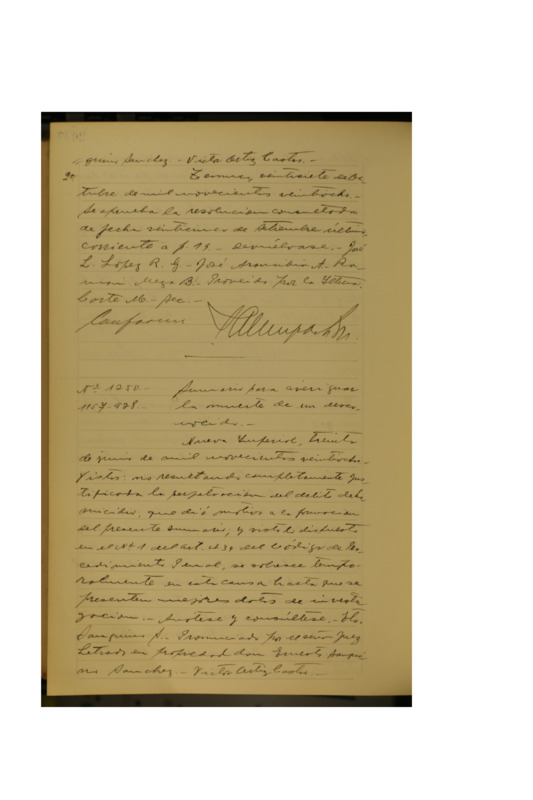 quino Sanchez.- Victor Ortiz Castro.-
2ª Temuco, veintisiete de Oc-
tubre de mil novecientos veintiocho.-
Se aprueba la resolucion consultada
de fecha veintinueve de Setiembre último,
corriente a f. 19.- Devuélvase.- José
L. López R. G.- José Arancibia A.- Ra-
mon Meza B.- Proveido por la Iltma.
Corte M.- Sec.-
Conforme
Nº 1250.- Sumario para averiguar
1157-928.- la muerte de un desco-
nocido.-
Nueva Imperial, treinta
de junio de mil novecientos veintiocho.-
Vistos: no resultando completamente jus-
tificada la perpetracion del delito de ho-
micidio, que dió motivo a la formacion
del presente sumario, y visto lo dispuesto
en el Nº 1 del art. 434 del Código de Pro-
cedimiento Penal, se sobresee tempo-
ralmente en esta causa hasta que se
presenten mejores datos de investi-
gacion.- Anótese y consúltese.- Eto.
Sanquino S.- Pronunciado por el señor Juez
Letrado en propiedad don Ernesto Sanqui
no Sanchez.- Victor Ortiz Castro.-